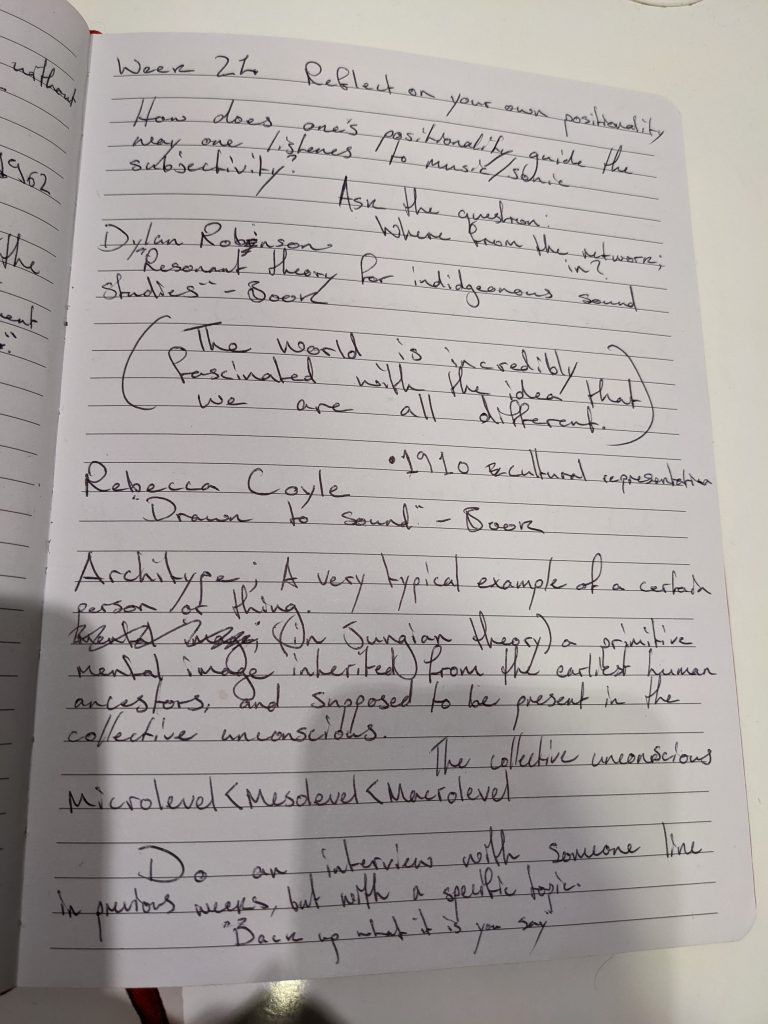 without
1962
the
Week 21. Reflect on your own positionality
How does one's positionality guide the
way one listenes to music/sonic
subjectivity?
Ask the question:
Where from the network;
in?
Dylan Robinson
"Resonant theory for indidgeonous sound
studies" - Book
(The world is incredibly
fascinated with the idea that
we are all different.)
•1910 cultural representation
Rebecca Coyle
"Drawn to sound" - Book
Architype; A very typical example of a certain
person/or thing.
(in Jungian theory) a primitive
mental image inherited from the earliest human
ancestors, and supposed to be present in the
collective unconscious.
The collective unconscious
Microlevel < Mesolevel < Macrolevel
Do an interview with someone like
in previous weeks, but with a specific topic.
"Back up what it is you say"